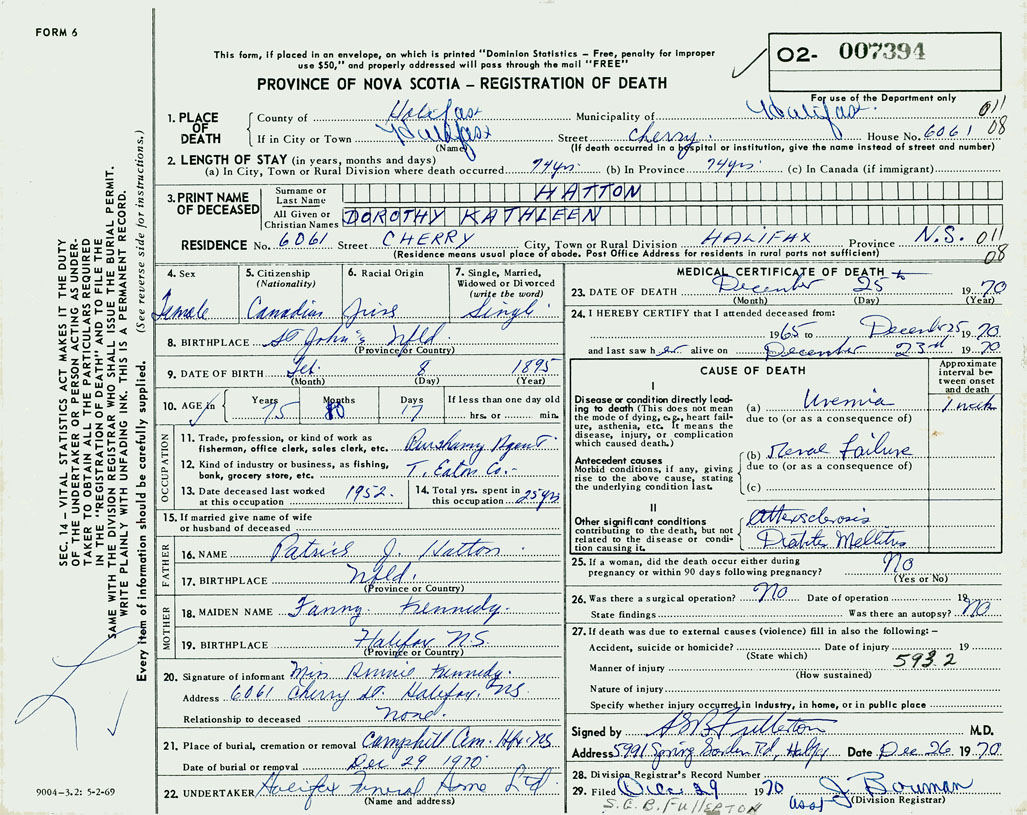 FORM 6
This form, if placed in an envelope, on which is printed "Dominion Statistics – Free, penalty for improper
use $50," and properly addressed will pass through the mail "FREE"
PROVINCE OF NOVA SCOTIA – REGISTRATION OF DEATH
O2- 007394
For use of the Department only
011
08
1. PLACE OF DEATH
County of Halifax Municipality of Halifax
If in City or Town Halifax Street Cherry. House No. 6061
(Name) (If death occurred in a hospital or institution, give the name instead of street and number)
2. LENGTH OF STAY (in years, months and days)
(a) In City, Town or Rural Division where death occurred 74yrs. (b) In Province 74yrs. (c) In Canada (if immigrant)
3. PRINT NAME OF DECEASED
Surname or Last Name HATTON
All Given or Christian Names DOROTHY KATHLEEN
RESIDENCE No. 6061 Street CHERRY City, Town or Rural Division HALIFAX Province N.S. 011
(Residence means usual place of abode. Post Office Address for residents in rural parts not sufficient) 08
4. Sex Female
5. Citizenship (Nationality) Canadian
6. Racial Origin
7. Single, Married, Widowed or Divorced (write the word) Single
8. BIRTHPLACE St John's Nfld
(Province or Country)
9. DATE OF BIRTH Feb. 8 1895
(Month) (Day) (Year)
10. AGE in Years 75 Months 10 Days 17 If less than one day old hrs. or min.
OCCUPATION
11. Trade, profession, or kind of work as fisherman, office clerk, sales clerk, etc. Agent
12. Kind of industry or business, as fishing, bank, grocery store, etc. T. Eaton Co.-
13. Date deceased last worked at this occupation 1952.
14. Total yrs. spent in this occupation 25yrs
15. If married give name of wife or husband of deceased
FATHER
16. NAME Patrick J. Hatton
17. BIRTHPLACE Nfld.
(Province or Country)
MOTHER
18. MAIDEN NAME Fanny Kennedy.
19. BIRTHPLACE Halifax N.S.
(Province or Country)
20. Signature of informant Miss Annie Kennedy.
Address 6061 Cherry St. Halifax, NS
Relationship to deceased None.
21. Place of burial, cremation or removal Camphill Cem. Hfx. NS
Date of burial or removal Dec 29 1970
22. UNDERTAKER Halifax Funeral Home Ltd
(Name and address)
MEDICAL CERTIFICATE OF DEATH
23. DATE OF DEATH December 25th 1970
(Month) (Day) (Year)
24. I HEREBY CERTIFY that I attended deceased from:
1965 to December 25 1970
and last saw her alive on December 23rd 1970
CAUSE OF DEATH
Approximate interval between onset and death
I
Disease or condition directly leading to death (This does not mean the mode of dying, e.g., heart failure, asthenia, etc. It means the disease, injury, or complication which caused death.)
(a) Uremia 1 week
due to (or as a consequence of)
Antecedent causes
Morbid conditions, if any, giving rise to the above cause, stating the underlying condition last.
(b) Renal Failure
due to (or as a consequence of)
(c)
II
Other significant conditions contributing to the death, but not related to the disease or condition causing it.
Diabetes Mellitus
25. If a woman, did the death occur either during pregnancy or within 90 days following pregnancy? No
(Yes or No)
26. Was there a surgical operation? No Date of operation 19
State findings Was there an autopsy? No
27. If death was due to external causes (violence) fill in also the following:–
Accident, suicide or homicide? Date of injury 19
(State which) 593 2
Manner of injury
(How sustained)
Nature of injury
Specify whether injury occurred in industry, in home, or in public place
Signed by SCB Fullerton M.D.
Address 5991 Spring Garden Rd, Halifx Date Dec 26 1970
28. Division Registrar's Record Number
29. Filed Dec 29 1970 J. Bowman
asst (Division Registrar)
S.C.B. FULLERTON
SEC. 14 – VITAL STATISTICS ACT MAKES IT THE DUTY
OF THE UNDERTAKER OR PERSON ACTING AS UNDER-
TAKER TO OBTAIN ALL THE PARTICULARS REQUIRED
IN THE "REGISTRATION OF DEATH" AND TO FILE THE
SAME WITH THE DIVISION REGISTRAR WHO SHALL ISSUE THE BURIAL PERMIT.
WRITE PLAINLY WITH UNFADING INK. THIS IS A PERMANENT RECORD.
Every item of information should be carefully supplied. (See reverse side for instructions.)
9004-3.2: 5-2-69